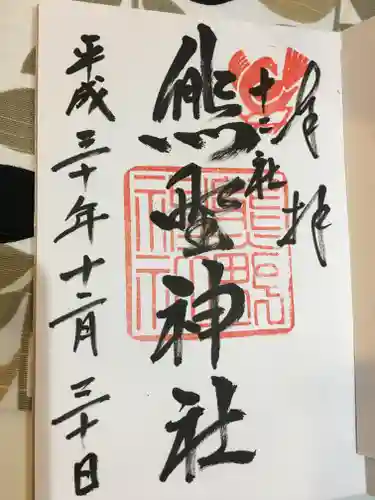 奉拝
十二社
熊野神社
平成三十年十二月三十日
熊野
神社